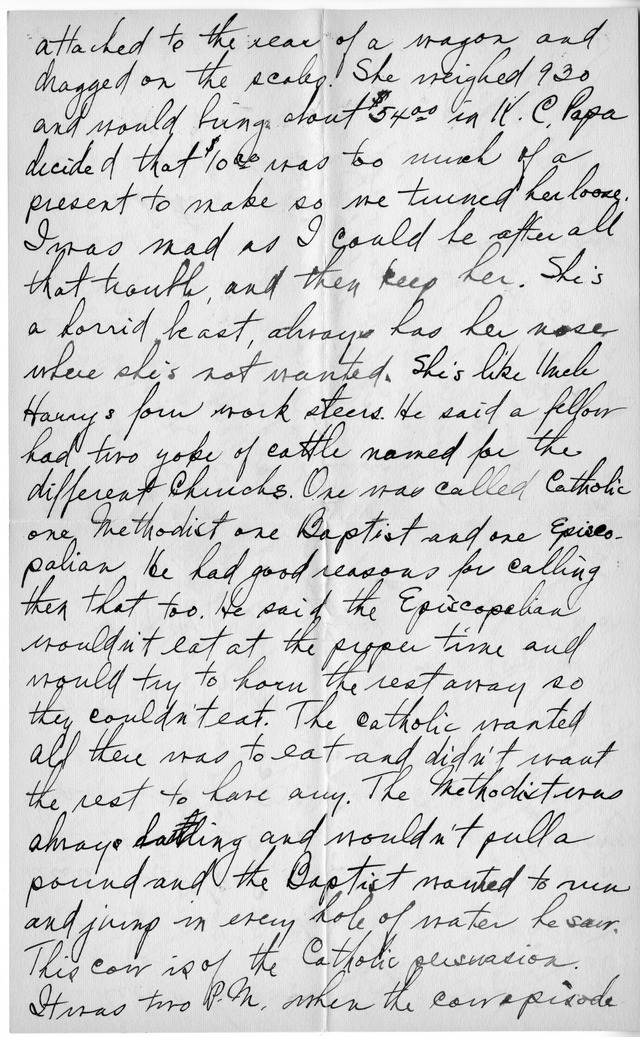 attached to the rear of a wagon and
dragged on the scales. She weighed 930
and would bring about $5400 in K. C. Papa
decided that $1000 was too much of a
present to make so we turned her loose.
I was mad as I could be after all
that trouble, and then keep her. She's
a horrid beast, always has her nose
where she's not wanted. She's like Uncle
Harry's four work steers. He said a fellow
had two yoke of cattle named for the
different Churchs. One was called Catholic
one Methodist one Baptist and one Episco-
palian He had good reasons for calling
then that too. He said the Episcopalian
wouldn't eat at the proper time and
would try to horn the rest away so
they couldn't eat. The Catholic wanted
all there was to eat and didn't want
the rest to have any. The Methodist was
always and wouldn't pull a
pound and the Baptist wanted to run
and jump in every hole of water he saw.
This cow is of the Catholic persuasion.
It was two P.M. when the cow episode